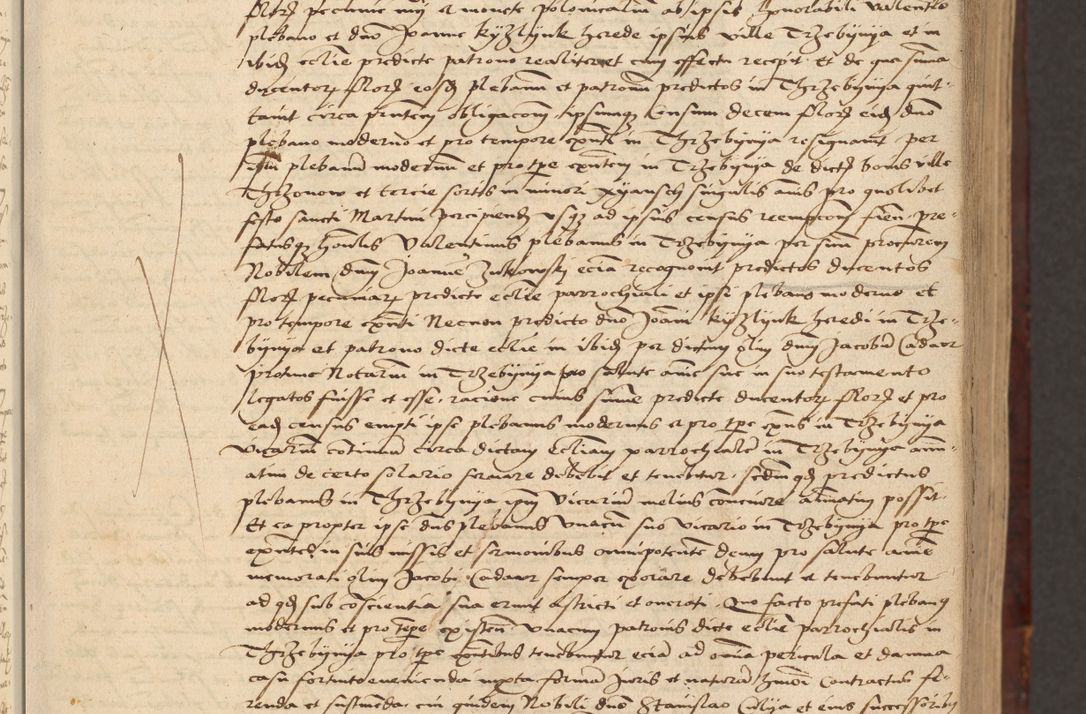 flor pecunie mṛi et monete polonicalium ab ipsis honorabili Valentio
plebano et dno Joanne kÿzlÿnk herede ipsius ville Trzebÿnÿa et in
ibid ecclie predicte patrono realiter et cum effectu recepit. Et de qua summa
ducentor florr eosd plebanu et patronu predictos in Thrzebÿnÿa quit-
tavit circa pntem obligacoem ipsumqz censum decem florr eid dno
plebano moderno et pro tempore exnti in Thrzebÿnÿa resignavit per
ipsu plebanu modernu et pro tpe exntem in Trzebÿnÿa de dictis bonis ville
Thrzonow et tercie sortis in minori Xÿansch singulis annis pro quolibet
festo sancti Martini percipiend usqz ad ipsius census reempcoem fien. Pre-
fatusqz honlis Valentinus plebanus in Trzebÿnÿa per suu procurem
Nobilem dnm Joanne Zukowskj ecia recognovit predictos ducentos
florr pecuniar predicte ecclie parrochiali et ipsi plebano moderno et
pro tempore exnti Necnon predicto dno Joani kÿzlÿnk heredi in Trze-
bÿnÿa et patrono dicte ecclie in ibid per dictum olim dnm Jacobu Cadaor
protunc Notarium in Trzebÿnÿa pro salute anie sue in suo testamento
legatos fuisse et esse. racione cuius sume predicte ducentor florr et pro
ead census empti ipse plebanus modernus et pro tpe exns in Trzebÿnÿa
vicariu continuu circa dictam eccliam parrochiale in Trzebÿnÿa anu-
atim de certo solario servare debebit et tenebitur. sedm qd predictus
plebanus in Thrzebÿnÿa ipm Vicariu melius convenire alias possit.
Et ea propter ipse dns plebanus unacu suo vicario in Trzebÿnÿa pro tpe
exntes in suis missis et sermonibus omnipotente deum pro salute anie
memorati olim Jacobi Cadaor semper exorare debebunt et tenebuntur
ad qd sub consciencia sua erunt astricti et onerati. Quo facto prefati plebanus
modernus et pro tempe existen. unacum patronis dicte ecclie parrochialis in
Thrzebÿnÿa pro tpe exntibus tenebuntur ecia ad omia pericula et damna
casu fortuito evenienda iuxta forma Juris et natura hmoi contractus fe-
renda et sustinenda. cui quidem Nobili dno Stanislao Culÿa et eius successoribus